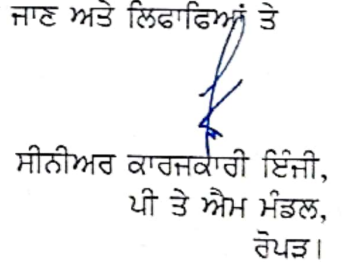 ਜਾਣ ਅਤੇ ਲਿਫਾਫਿਆਂ ਤੇ
ਸੀਨੀਅਰ ਕਾਰਜਕਾਰੀ ਇੰਜੀ,
ਪੀ ਤੇ ਐਮ ਮੰਡਲ,
ਰੋਪੜ।